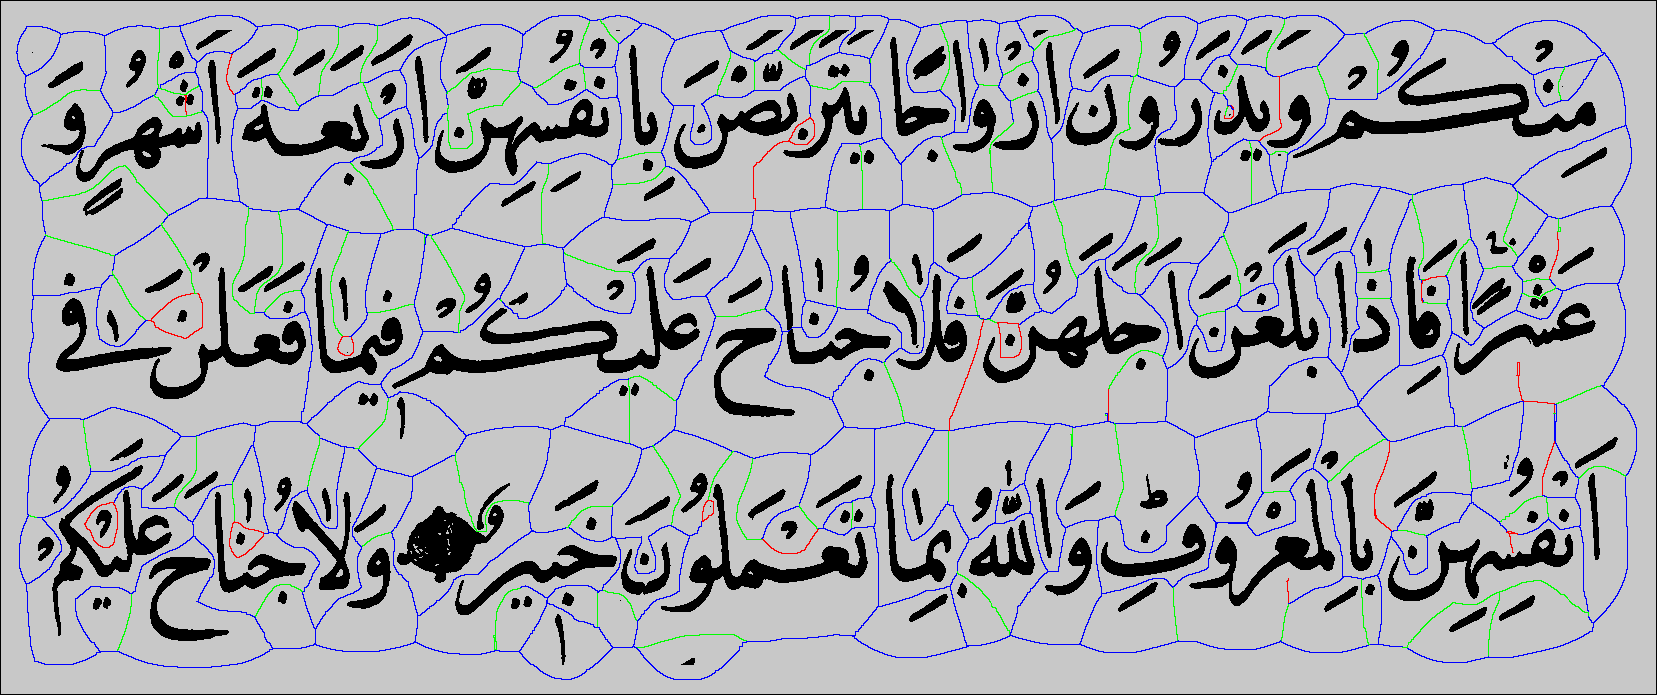 مِنْكُمْ وَيَذَرُونَ اَزْوَاجًا يَتَرَبَّصْنَ بِاَنْفُسِهِنَّ اَرْبَعَةَ اَشْهُرٍ وَ
عَشْرًا فَاِذَا بَلَغْنَ اَجَلَهُنَّ فَلَا جُنَاحَ عَلَيْكُمْ فِيمَا فَعَلْنَ فِى
اَنْفُسِهِنَّ بِالْمَعْرُوفِ وَاللّٰهُ بِمَا تَعْمَلُونَ خَبِيرٌ وَلَا جُنَاحَ عَلَيْكُمْ